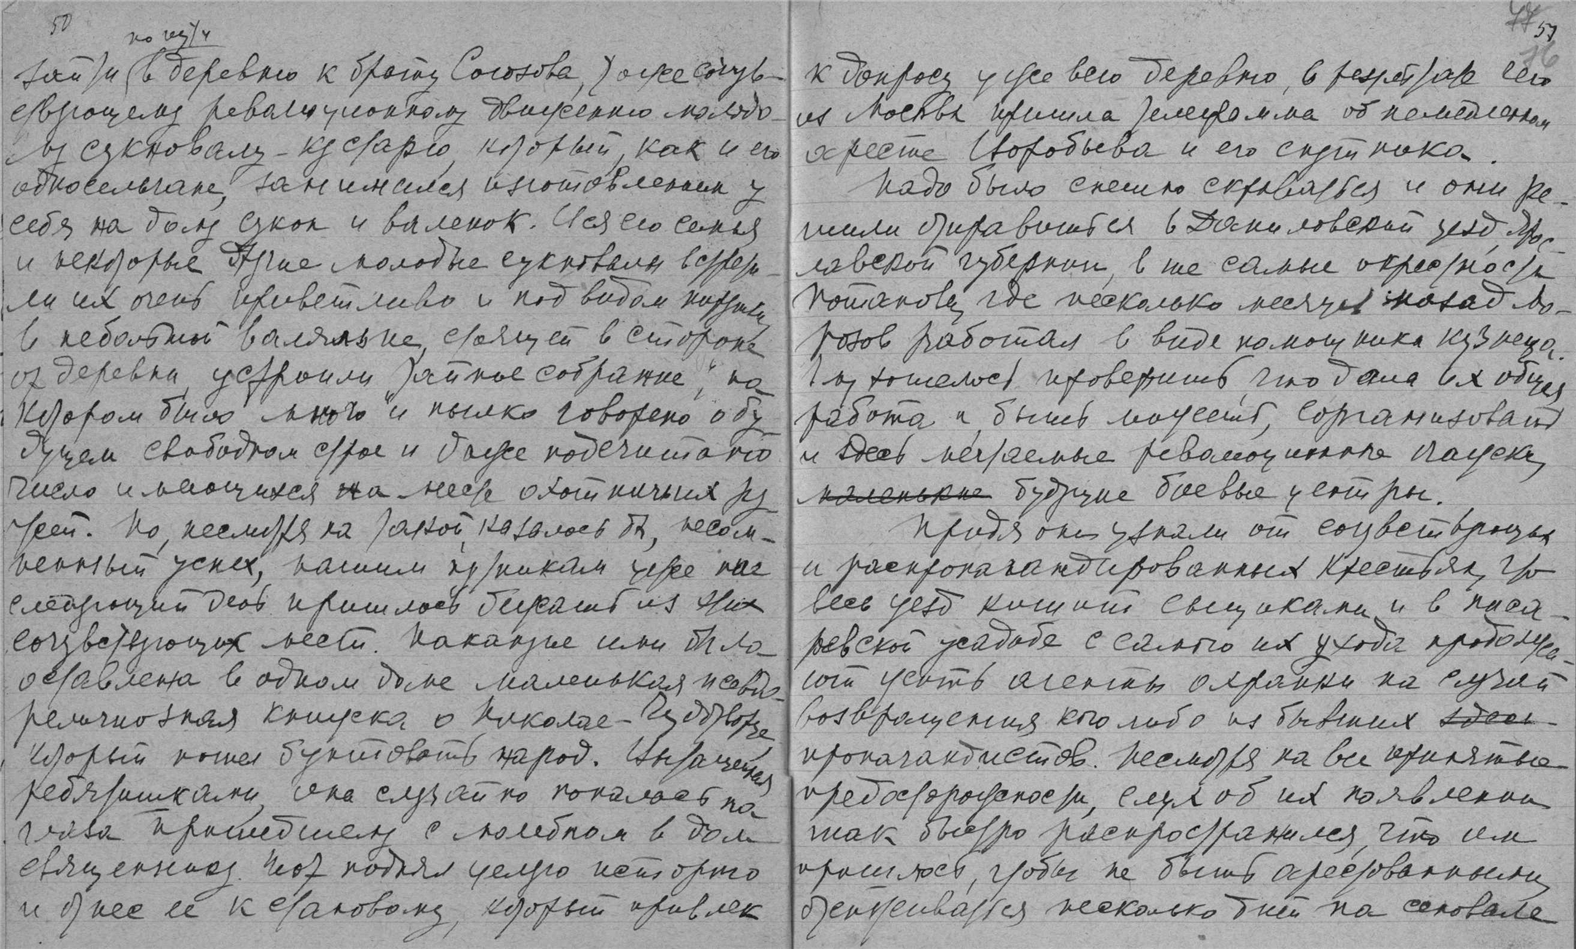 50
по пути
зайти в деревню к брату Союзова, тоже сочув-
ствующему революционному движению молодо-
му сукновалу-кустарю, который, как и его
односельчане, занимался изготовлением у
себя на дому сукон и валенок. Вся его семья
и некоторые другие молодые сукновалы встрети-
ли их очень приветливо и под видом
в небольшой валяльне, стоящей в стороне
от деревни, устроили "тайное собрание", на
котором было много и пылко говорено о бу-
дущем свободном строе и даже подсчитано
число имеющихся на месте охотничьих ру-
жей. Но, несмотря на такой, казалось бы, несом-
ненный успех, нашим путникам уже на
следующий день пришлось бежать из этих
сочувствующих мест. Накануне ими была
оставлена в одном доме маленькая псевдо-
религиозная книжка о Николае-Чудотворце,
который пошел бунтовать народ. Вытащенная
ребятишками, она случайно попалась на
глаза пришедшему с молебном в дом
священнику. Тот поднял целую историю
и отнес ее к становому, который привлек
51
к допросу уже всю деревню, в результате чего
из Москвы пришла телеграмма об немедленном
аресте Воробьева и его спутника.
Надо было спешно скрываться и они ре-
шили отправиться в Даниловский уезд, Яро-
славской губернии, в те самые окрестности
Потапова, где несколько месяцев назад Мо-
розов работал в виде помощника кузнеца.
Им хотелось проверить, что дала их общая
работа и быть может, сорганизовать
и здесь летучие революционные
маленькие будущие боевые центры.
Придя они узнали от сочувствующих
и распропагандированных крестьян, что
весь уезд кишит сыщиками и в писа-
ревской усадьбе с самого их ухода продолжа-
ют жить агенты охранки на случай
возвращения кого либо из бывших здесь
пропагандистов. Несмотря на все принятые
предосторожности, слух об их появлении
так быстро распространился, что им
пришлось, чтобы не быть арестованными,
отсиживаться несколько дней на сеновале